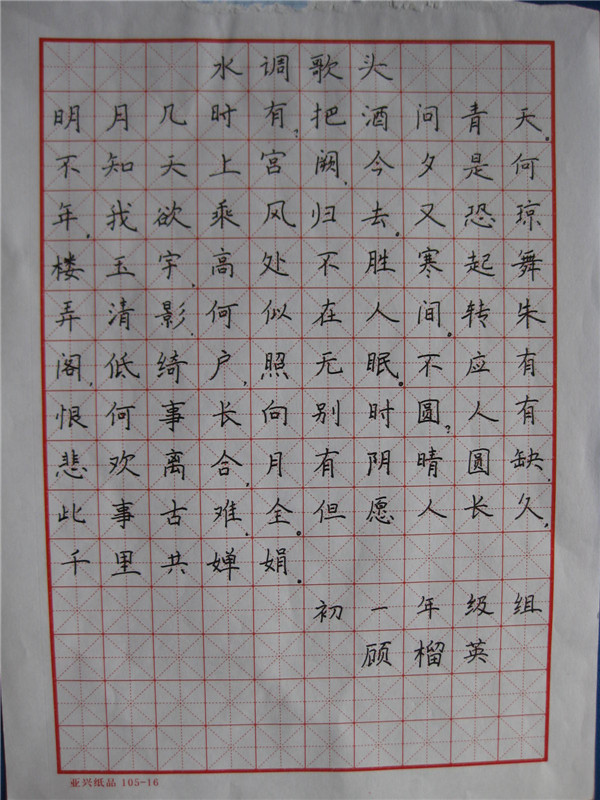 水调歌头
明月几时有,把酒问青天。
不知天上宫阙、今夕是何
年。我欲乘风归去。又恐琼
楼玉宇、高处不胜寒起舞
弄清影、何似在人间。转朱
阁,低绮户,照无眠。不应有
恨何事长向别时圆?人有
悲欢离合,月有阴晴圆缺,
此事古难全。但愿人长久,
千里共婵娟。
初一年级组
顾榴英
亚兴纸品 105-16